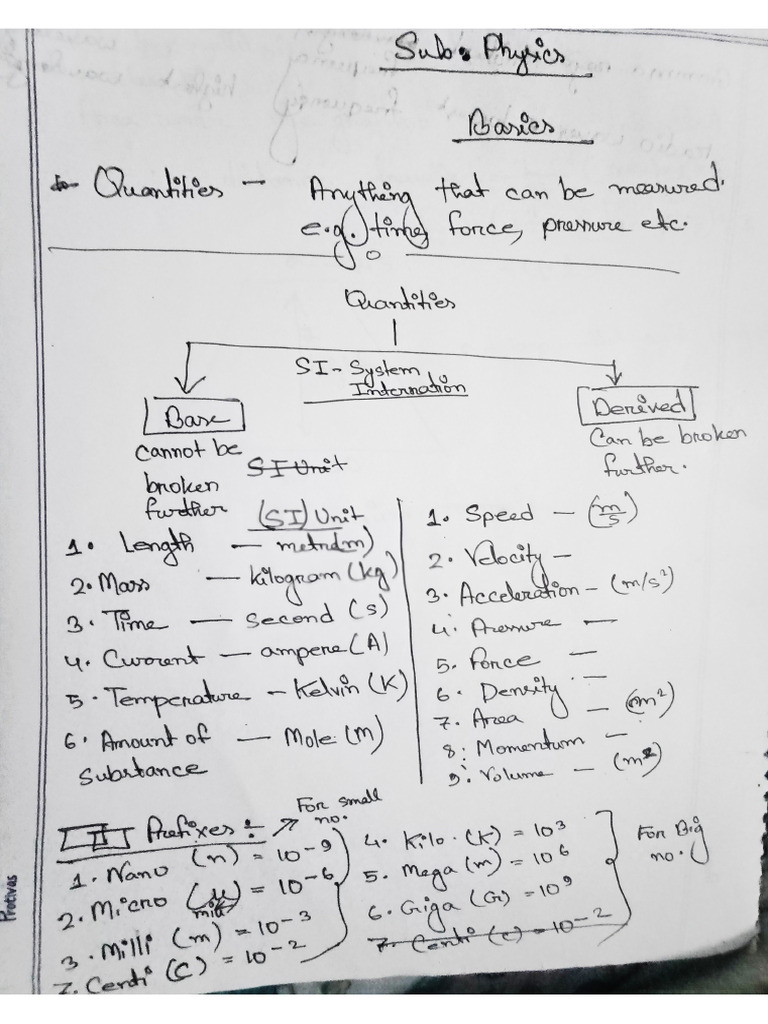 Sub. Physics
Basics
Quantities — Anything that can be measured.
e.g. time, force, pressure etc.
Quantities
SI - System
Internation
Base
cannot be
broken
further
Derived
Can be broken
further.
SI Unit
(SI) Unit
1. Length — metre(m)
2. Mass — kilogram (kg)
3. Time — second (s)
4. Current — ampere (A)
5. Temperature — Kelvin (K)
6. Amount of — Mole (m)
substance
1. Speed — (m/s)
2. Velocity —
3. Acceleration — (m/s²)
4. Pressure —
5. Force —
6. Density —
7. Area — (m²)
8. Momentum —
9. Volume — (m³)
II Prefixes ÷ → For small
no.
1. Nano (n) = 10⁻⁹
2. Micro (μ) = 10⁻⁶
3. Milli (m) = 10⁻³
7. Centi (C) = 10⁻²
4. Kilo. (K) = 10³
5. Mega (m) = 10⁶
6. Giga (G) = 10⁹
7. Centi (c) = 10⁻²
For Big
no.
Protivas